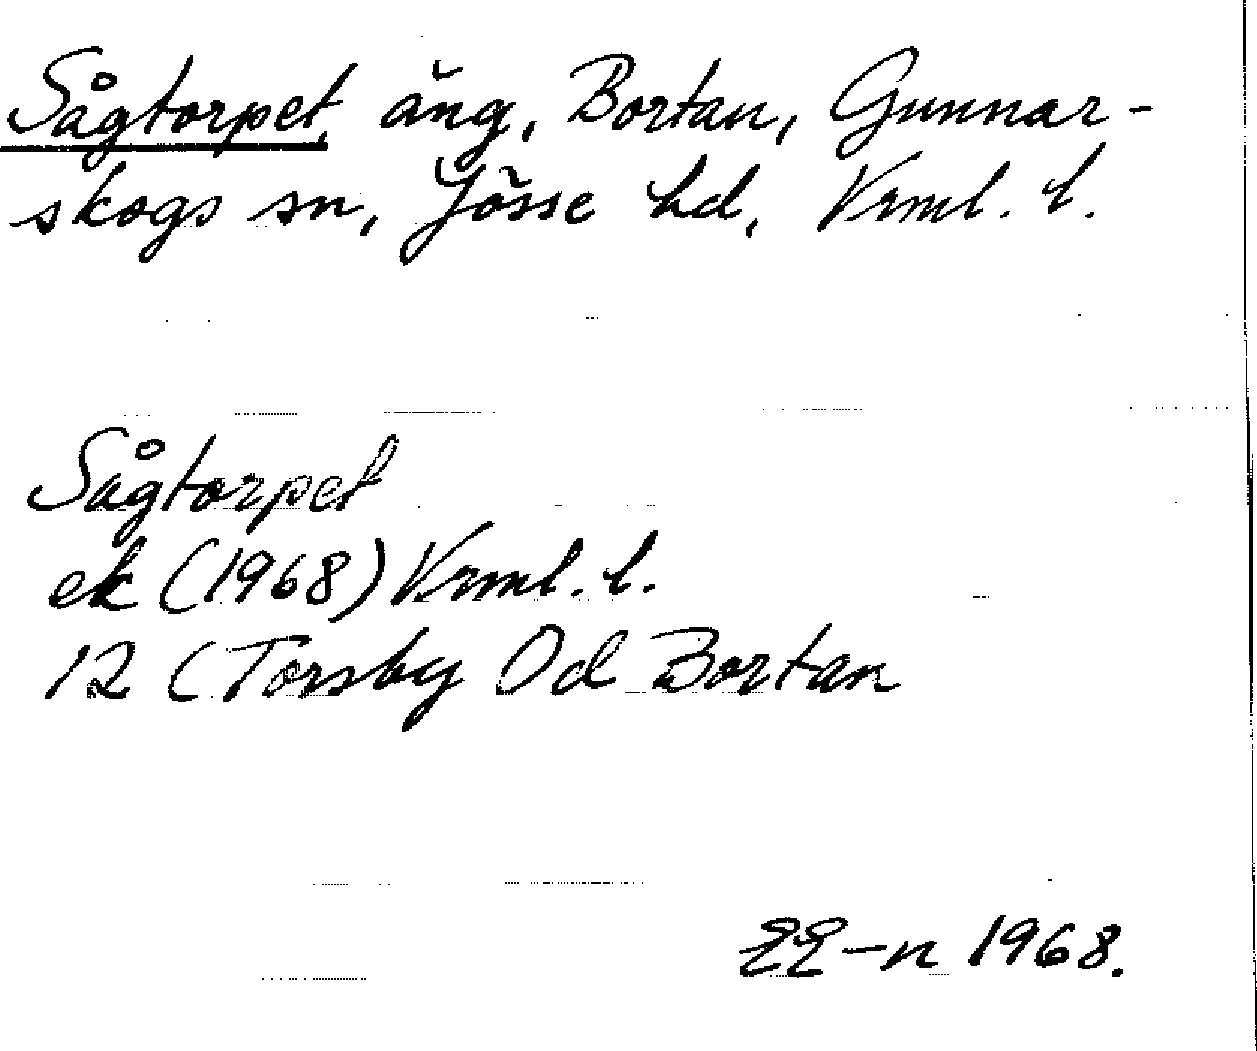 Sågtorpet, äng, Bortan, Gunnar-
skogs sn, Jösse hd, Vrml. l.
Sågtorpet
ek (1968) Vrml. l.
12 C Torsby Od Bortan
EE-n 1968.